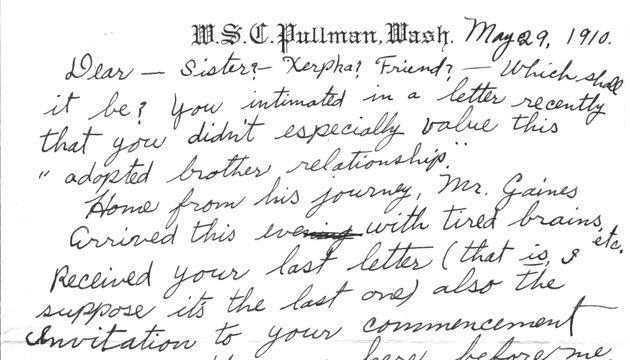 W.S.C. Pullman, Wash. May 29, 1910.
Dear — Sister? — Xerpha? Friend? — Which shall
it be? You intimated in a letter recently
that you didn't especially value this
"adopted brother relationship."
Home from his journey, Mr. Gaines
Arrived this evening with tired brains, etc.
Received your last letter (that is, I
suppose its the last one) also the
Invitation to your commencement
here before me.